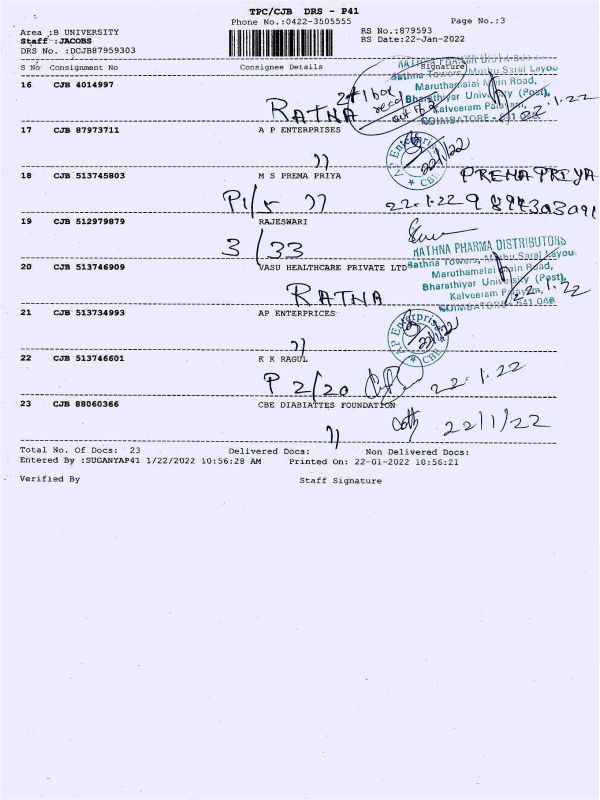 TPC/CJB DRS - P41
Phone No.:0422-3505555 Page No.:3
Area :B UNIVERSITY RS No.:879593
Staff :JACOBS RS Date:22-Jan-2022
DRS No. :DCJB87959303
S No Consignment No Consignee Details Signature
RATHNA PHARMA DISTRIBUTORS
Sathna Towers, Muthu Saral Layou
16 CJB 4014997
Maruthamalai Main Road,
2+1 box
Bharathiyar University (Post),
RATNA
Kalveeram Palayam,
22.1.22
COIMBATORE - 641 046
17 CJB 87973711 A P ENTERPRISES
AP Enterprises
22/1/22
★ CBE
18 CJB 513745803 M S PREMA PRIYA
PREMA PRIYA
P1/5
22.1.22
19 CJB 512979879 RAJESWARI
3/33
RATHNA PHARMA DISTRIBUTORS
Sathna Towers, Muthu Saral Layou
20 CJB 513746909 VASU HEALTHCARE PRIVATE LTD
Maruthamalai Main Road,
Bharathiyar University (Post),
RATNA
Kalveeram Palayam,
22.1.22
COIMBATORE - 641 046
21 CJB 513734993 AP ENTERPRICES
AP Enterprises
22/1/22
★ CBE
22 CJB 513746601 K K RAGUL
P 2/20 22.1.22
23 CJB 88060366 CBE DIABIATTES FOUNDATION
22/1/22
Total No. Of Docs: 23 Delivered Docs: Non Delivered Docs:
Entered By :SUGANYAP41 1/22/2022 10:56:28 AM Printed On: 22-01-2022 10:56:21
Verified By Staff Signature